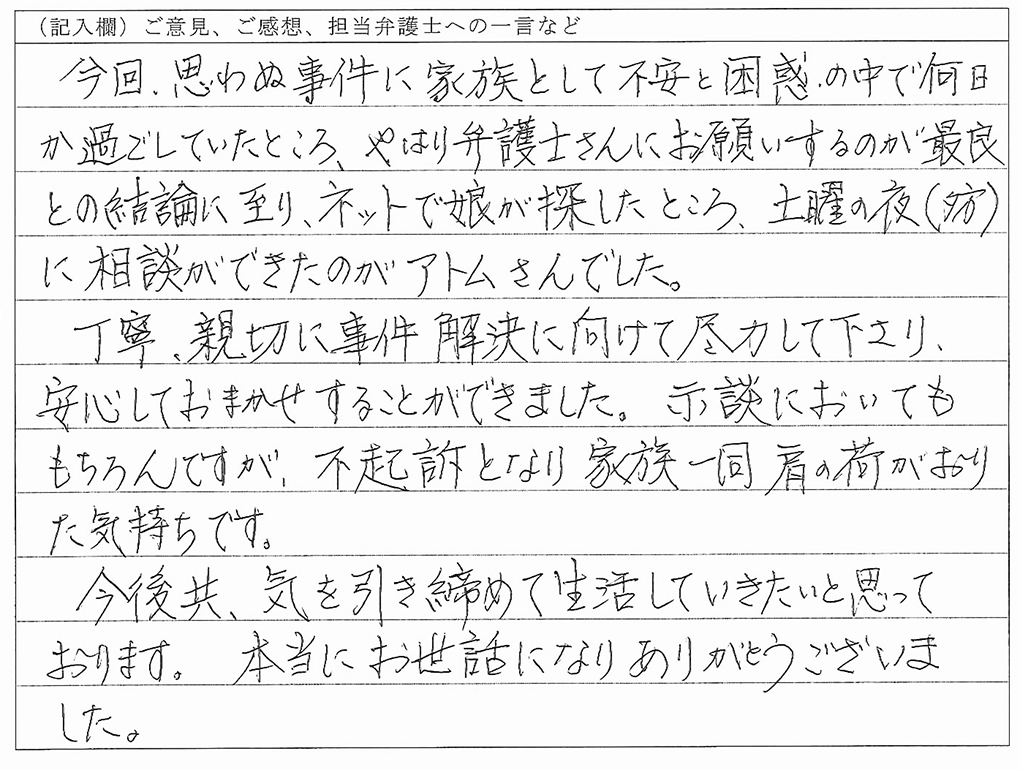 (記入欄) ご意見、ご感想、担当弁護士への一言など
今回、思わぬ事件に家族として不安と困惑の中で何日
か過ごしていたところ、やはり弁護士さんにお願いするのが最良
との結論に至り、ネットで娘が探したところ、土曜の夜(夕方)
に相談ができたのがアトムさんでした。
丁寧、親切に事件解決に向けて尽力して下さり、
安心しておまかせすることができました。示談においても
もちろんですが、不起訴となり家族一同肩の荷がおり
た気持ちです。
今後共、気を引き締めて生活していきたいと思って
おります。本当にお世話になりありがとうございま
した。